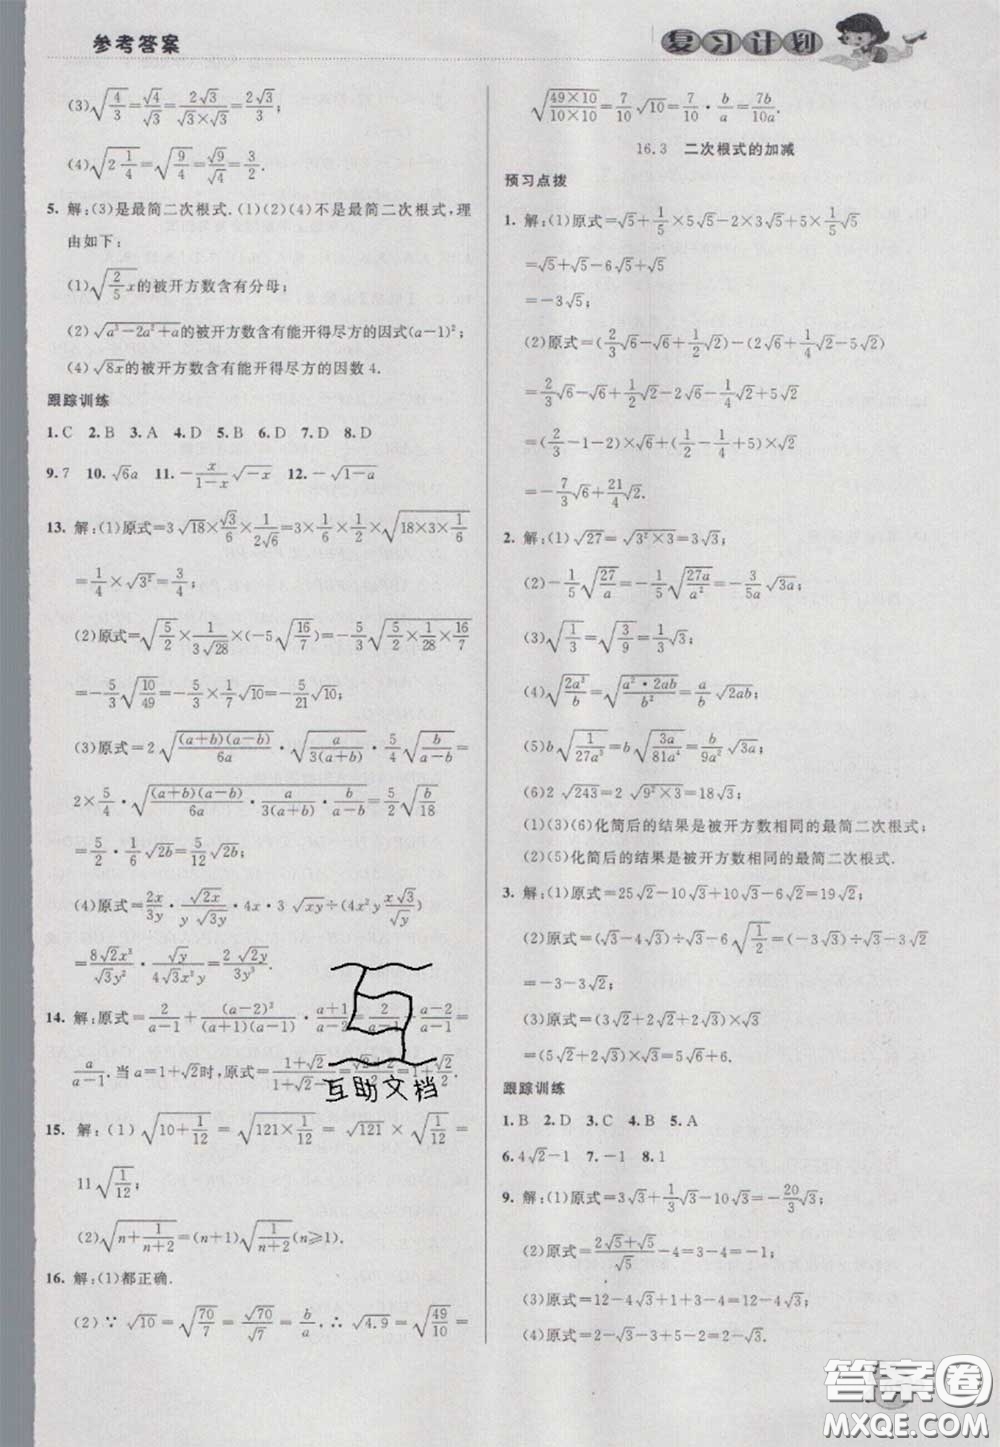 参考答案
复习计划
(3)√(4/3)=√4/√3=2√3/(√3×√3)=2√3/3;
(4)√(2 1/4)=√(9/4)=√9/√4=3/2.
5. 解:(3)是最简二次根式.(1)(2)(4)不是最简二次根式,理
由如下:
(1)√(2/5 x)的被开方数含有分母;
(2)√(a³-2a²+a)的被开方数含有能开得尽方的因式(a-1)²;
(4)√(8x)的被开方数含有能开得尽方的因数4.
跟踪训练
1.C 2.B 3.A 4.D 5.B 6.D 7.D 8.D
9.7 10.√6a 11.-x/(1-x) √(-x) 12.-√(1-a)
13. 解:(1)原式=3√18×√3/6×1/(2√6)=3×1/6×1/2×√(18×3×1/6)
=1/4×√(3²)=3/4;
(2)原式=√(5/2)×1/(3√28)×(-5√(16/7))=-5/3√(5/2×1/28×16/7)
=-5/3√(10/49)=-5/3×1/7√10=-5/21√10;
(3)原式=2√((a+b)(a-b)/6a)·√(a/3(a+b))·5/4√(b/(a-b))=
2×5/4·√((a+b)(a-b)/6a·a/3(a+b)·b/(a-b))=5/2√(b/18)
=5/2·1/6√(2b)=5/12√(2b);
(4)原式=2x/3y·√(2x)/(y√3)·4x·3√(xy)÷(4x²y·x√3/√y)
=8√2x³/(√3y²)·√y/(4√3x³y)=2√(2y)/3y³.
14. 解:原式=2/(a-1)+(a-2)²/((a+1)(a-1))·(a+1)/(a-2)=2/(a-1)+(a-2)/(a-1)=
a/(a-1).当a=1+√2时,原式=(1+√2)/(1+√2-1)=(√2+2)/2.
15. 解:(1)√(10+1/12)=√(121×1/12)=√121×√(1/12)=
11√(1/12);
(2)√(n+1/(n+2))=(n+1)√(1/(n+2))(n≥1).
16. 解:(1)都正确.
(2)∵√10=√(70/7)=√70/√7=b/a,∴√4.9=√(49/10)=
√(49×10/10×10)=7/10√10=7/10·b/a=7b/10a.
16.3 二次根式的加减
预习点拨
1. 解:(1)原式=√5+1/5×5√5-2×3√5+5×1/5√5
=√5+√5-6√5+√5
=-3√5;
(2)原式=(2/3√6-√6+1/2√2)-(2√6+1/4√2-5√2)
=2/3√6-√6+1/2√2-2√6-1/4√2+5√2
=(2/3-1-2)×√6+(1/2-1/4+5)×√2
=-7/3√6+21/4√2.
2. 解:(1)√27=√(3²×3)=3√3;
(2)-1/5√(27/a)=-1/5√(27a/a²)=-3/5a√(3a);
(3)√(1/3)=√(3/9)=1/3√3;
(4)√(2a³/b)=√(a²·2ab/b²)=a/b√(2ab);
(5)b√(1/27a³)=b√(3a/81a⁴)=b/9a²√(3a);
(6)2√243=2√(9²×3)=18√3;
(1)(3)(6)化简后的结果是被开方数相同的最简二次根式;
(2)(5)化简后的结果是被开方数相同的最简二次根式.
3. 解:(1)原式=25√2-10√3+10√3-6√2=19√2;
(2)原式=(√3-4√3)÷√3-6√(1/2)=(-3√3)÷√3-3√2
=-3-3√2;
(3)原式=(3√2+2√2+2√3)×√3
=(5√2+2√3)×√3=5√6+6.
跟踪训练
1.B 2.D 3.C 4.B 5.A
6.4√2-1 7.-1 8.1
9. 解:(1)原式=3√3+1/3√3-10√3=-20/3√3;
(2)原式=(2√5+√5)/√5-4=3-4=-1;
(3)原式=12-4√3+1+3-4=12-4√3;
(4)原式=2-√3-1+2-√3=3-2√3.
互助文档
答案圈
MXQE.COM